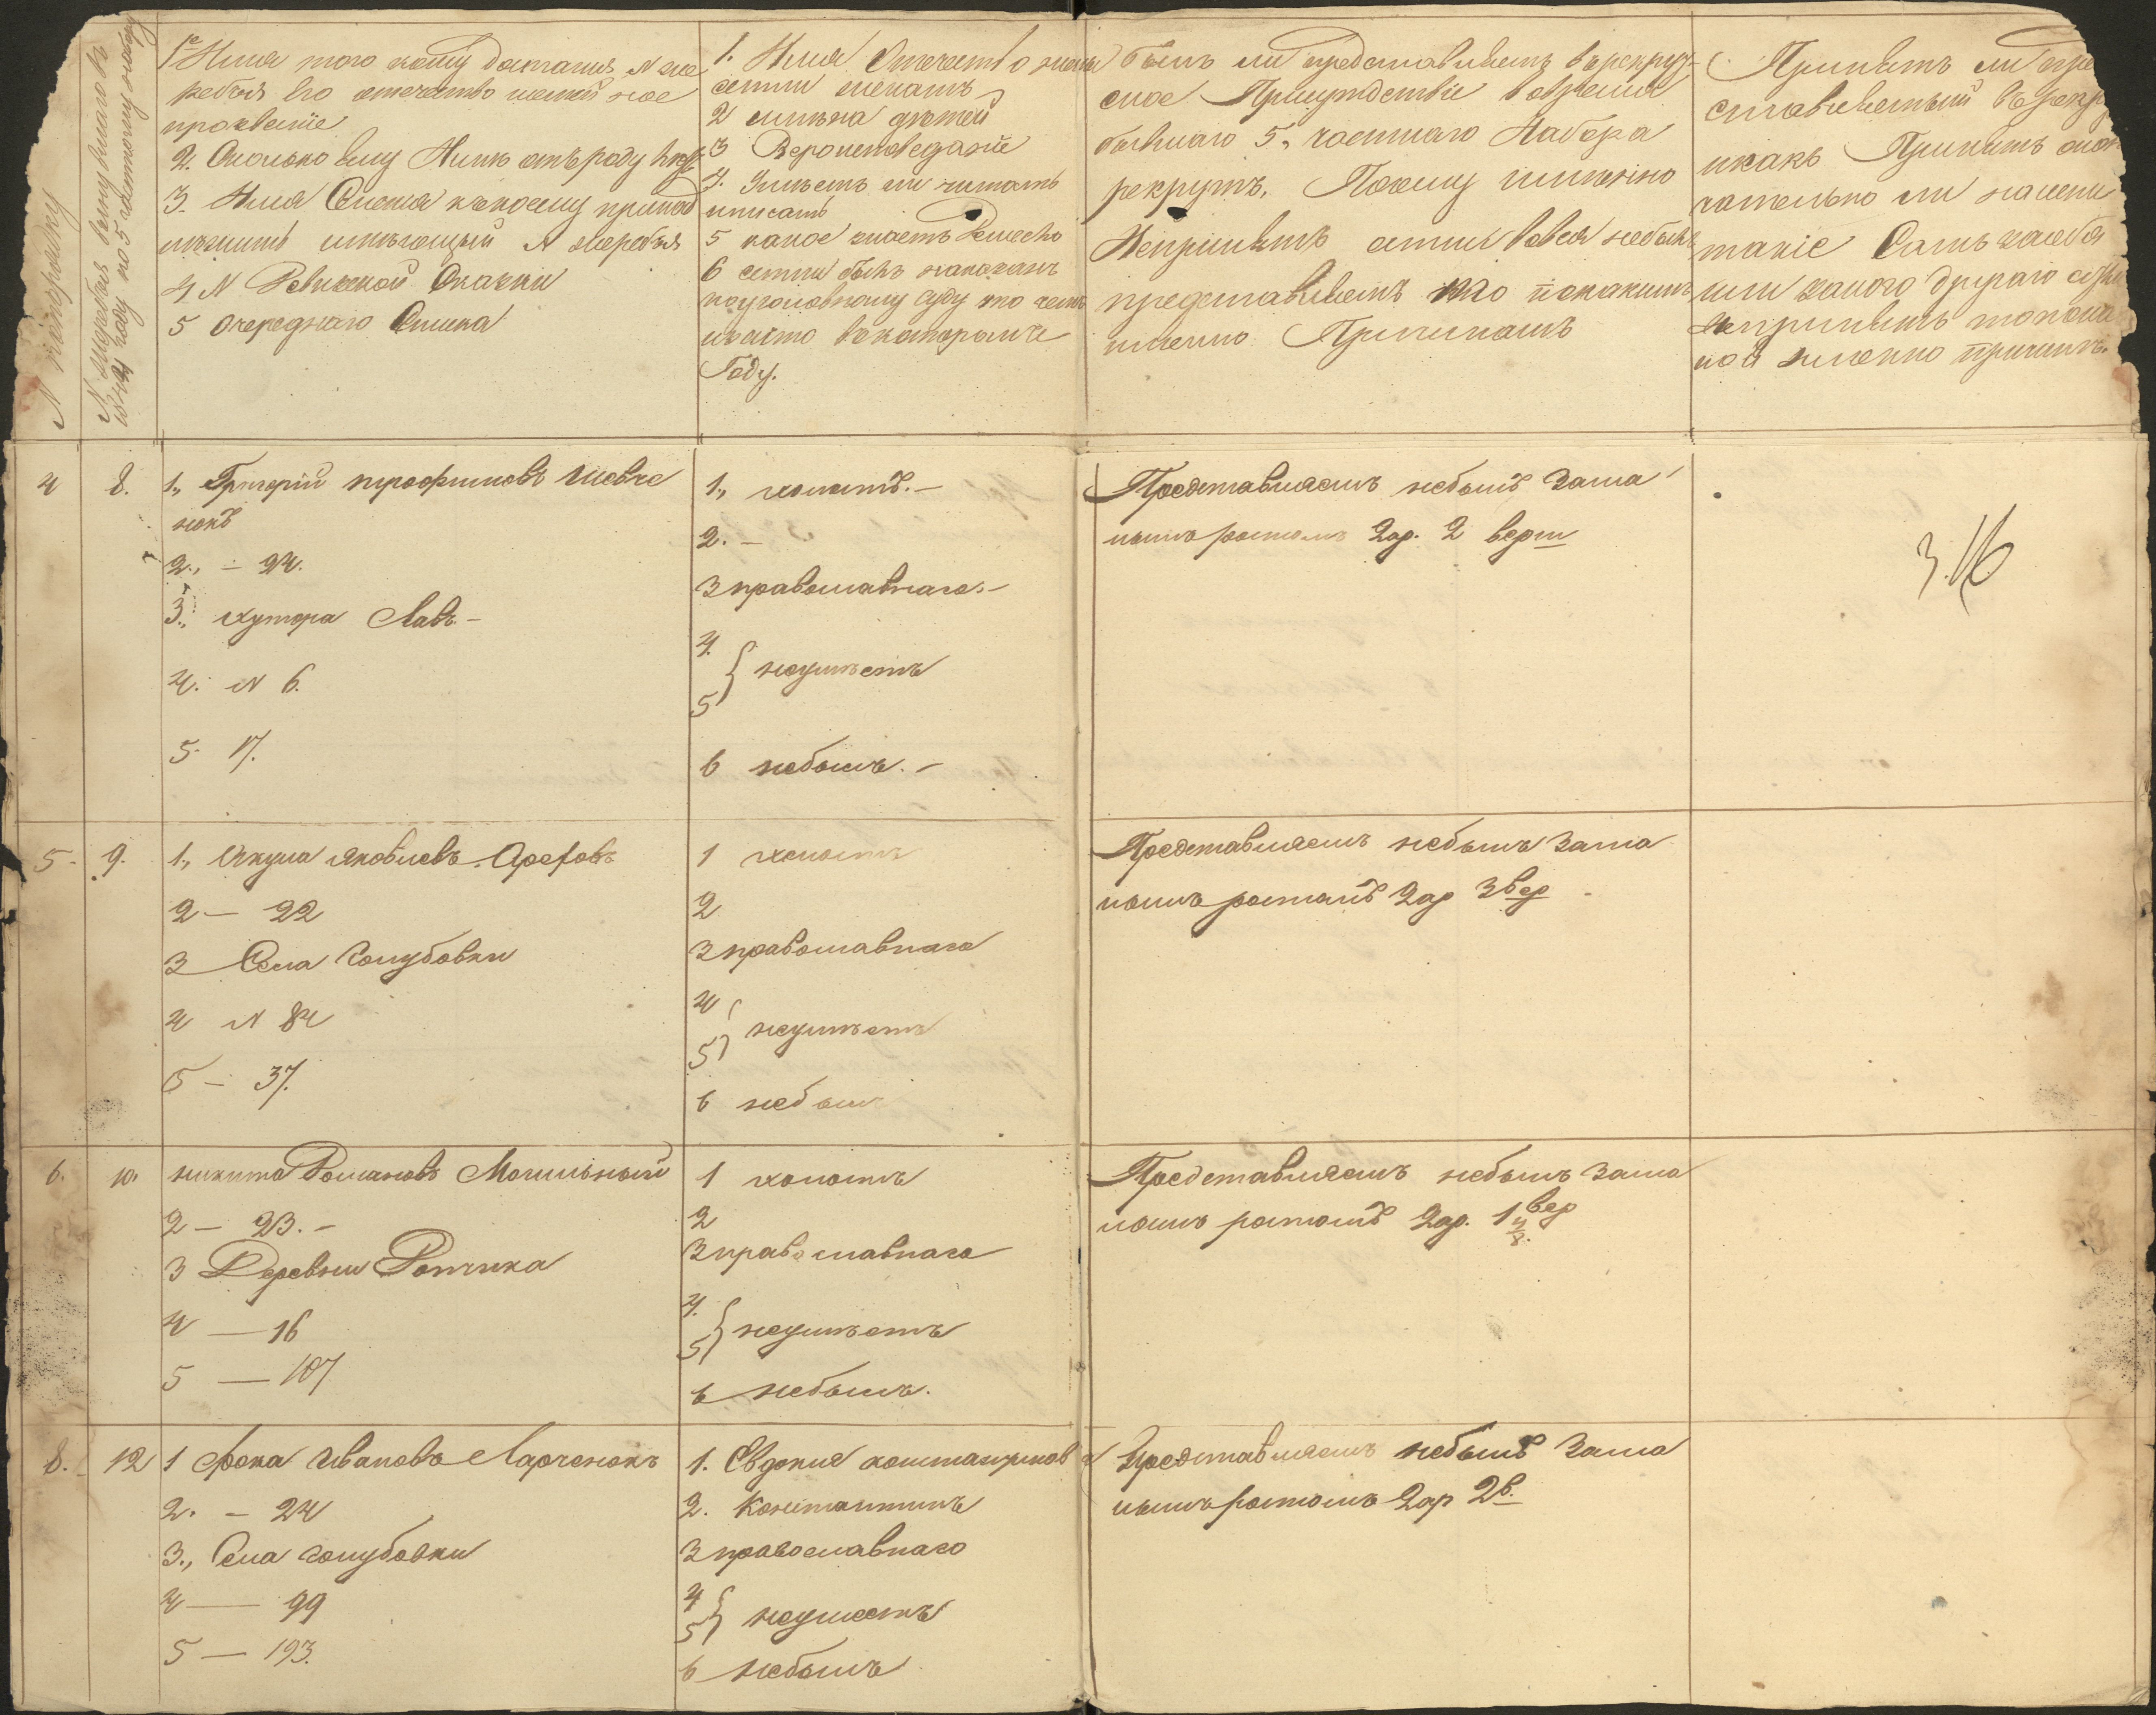 N попорядку
N жеребья вынутаго въ
1842 году по 5 частному набору
1е Имя того кому достался N же
ребья Его отечество или
прозвание
2. Сколько ему Нынѣ отъ роду лѣтъ
3. Имя Селенія къ коему принад
лежитъ имѣющій N жеребья
4 N Ревизской Сказки
5 очереднаго Списка
1. Имя Отечество жены
если женатъ
2 имена дѣтей
3 Вероисповедание
4. Умѣетъ ли читать
и писать
5 какое знаетъ Ремесло
6 если былъ наказанъ
по уголовному суду то чемъ
и въ которомъ
Году.
былъ ли представляемъ въ рекрут-
ское Присудствіе вовремя
бывшаго 5. частнаго Набора
рекрутъ. Почему имянно
Непринятъ если вовсе небылъ
представляемъ то покакимъ
именно Причинамъ
Принятъ ли пред
ставляемый въ рекр
и какъ Принятъ окон
чательно ли на
такіе Самъ засебя
или закого другаго если
непринятъ то покa
кой именно причинѣ.
4
8.
1., Григорій трофимовъ Шевче
нокъ
2., – 24.
3., хутора Лавъ –
4. N 6.
5. 17.
1., холостъ. –
2. –
3 православнаго. –
4.
5 } неумѣетъ
6 небылъ. –
Представляемъ небылъ зама
лымъ ростомъ 2 ар. 2 верш
3.16
5.
9.
1., Акула Яковлевъ Арефовъ
2 – 22
3 Села Голубовки
4 N 84
5 – 37.
1 холостъ
2
3 православнаго
4
5 } неумѣетъ
6 небылъ
Представляемъ небылъ зама
лымъ ростомъ 2 ар 3 вер
6.
10.
никита Романовъ Могильный
2 – 23. –
3 Деревни Ропчика
4 — 16
5 — 107
1 холостъ
2
3 православнаго
4.
5 } неумѣетъ
6 небылъ.
Представляемъ небылъ зама
лымъ ростомъ 2 ар. 1 4/8 вер
8.
12
1 Фока Ивановъ Марченокъ
2. – 24
3., Села Голубовки
4 — 99
5 — 193.
1. Евдокия констанинова
2. Константинъ
3 православнаго
4
5 } неумеетъ
6 небылъ
Представляемъ небылъ зама
лымъ ростомъ 2 ар 2 в.